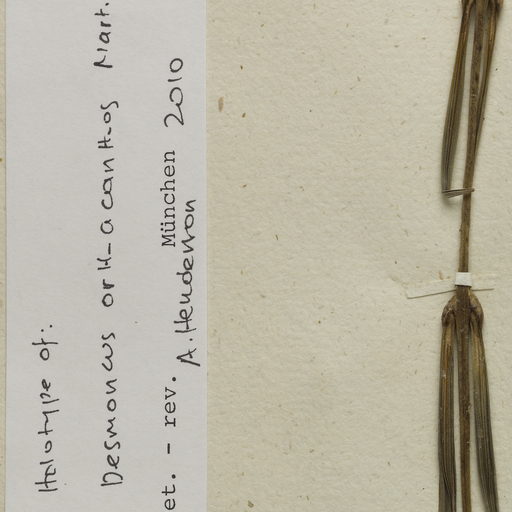 Holotype of:
Desmoncus orthacanthos Mart.
et. - rev. München 2010
A. Henderson